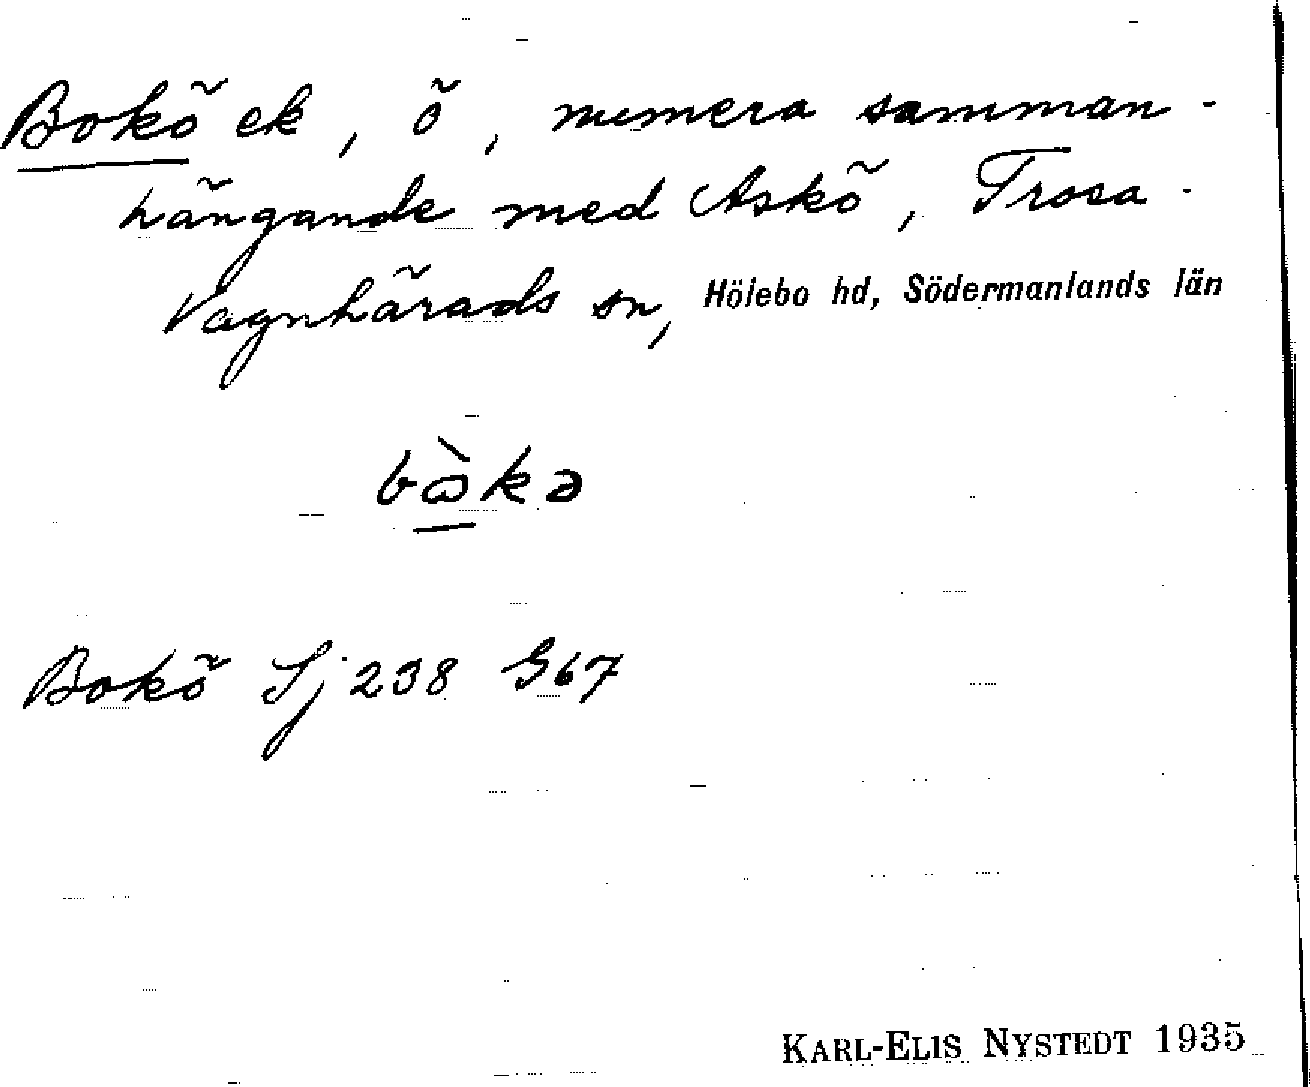 Bokö ek, ö, numera samman-
hängande med Askö, Trosa-
Vagnhärads sn, Hölebo hd, Södermanlands län
bὼkə
Bokö Sj 238 G67
KARL-ELIS NYSTEDT 1935